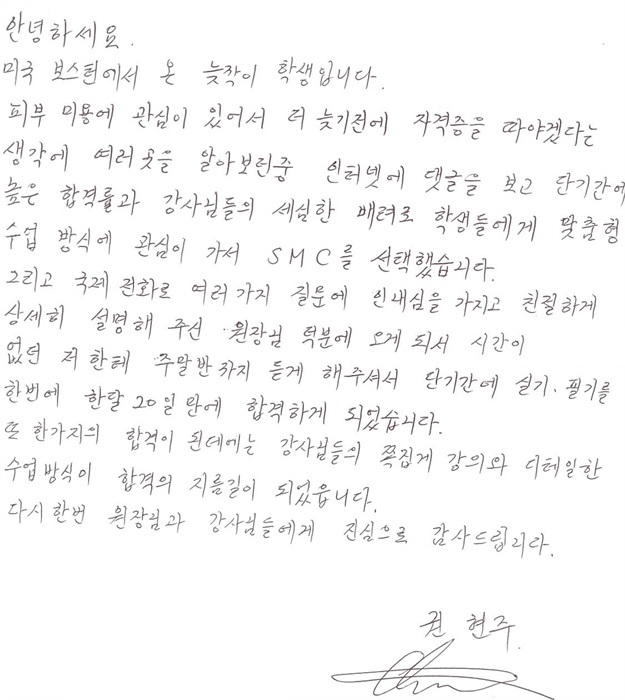 안녕하세요.
미국 보스턴에서 온 늦작이 학생입니다.
피부 미용에 관심이 있어서 더 늦기전에 자격증을 따야겠다는
생각에 여러곳을 알아보던중 인터넷에 댓글을 보고 단기간에
높은 합격률과 강사님들의 세심한 배려로 학생들에게 맞춤형
수업 방식에 관심이 가서 SMC를 선택했습니다.
그리고 국제 전화로 여러가지 질문에 인내심을 가지고 친절하게
상세히 설명해 주신 원장님 덕분에 오게 되서 시간이
없던 저한테 주말반까지 듣게 해주셔서 단기간에 실기.필기를
한번에 한달 20일만에 합격하게 되었습니다.
또 한가지의 합격이 된데에는 강사님들의 쪽집게 강의와 디테일한
수업방식이 합격의 지름길이 되었읍니다.
다시한번 원장님과 강사님들에게 진심으로 감사드립니다.
권 현주.